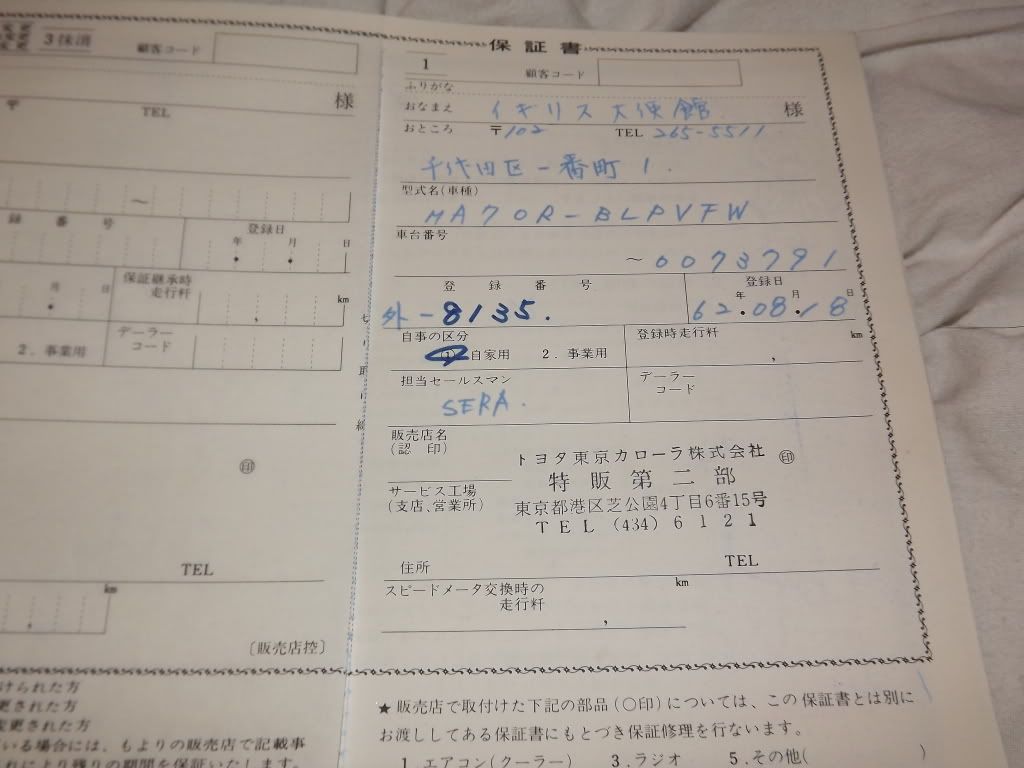 3 抹消
顧客コード
〒
TEL
様
～
録 番 号
登録日
年 月 日
保証継承時
走行粁
km
2. 事業用
デーラー
コード
㊞
TEL
km
〔販売店控〕
けられた方
更された方
変更された方
いる場合には、もよりの販売店で記載事
れにより残りの期間を保証いたします。
切り取り線
保証書
1
顧客コード
ふりがな
おなまえ イギリス大使館 様
おところ 〒102 TEL 265-5511
千代田区一番町1.
型式名(車種)
MA70R-BLPVFW
車台番号
～0073791
登録番号
登録日
年 月 日
外-8135.
62.08.18
自事の区分
① 自家用 2. 事業用
登録時走行料
km
,
担当セールスマン
SERA.
デーラー
コード
販売店名
(認印)
トヨタ東京カローラ株式会社 ㊞
特販第二部
サービス工場
(支店、営業所)
東京都港区芝公園4丁目6番15号
TEL (434) 6121
住所
TEL
スピードメータ交換時の
走行粁
km
,
★販売店で取付けた下記の部品(○印)については、この保証書とは別に
お渡ししてある保証書にもとづき保証修理を行ないます。
1.エアコン(クーラー) 3.ラジオ 5.その他( )